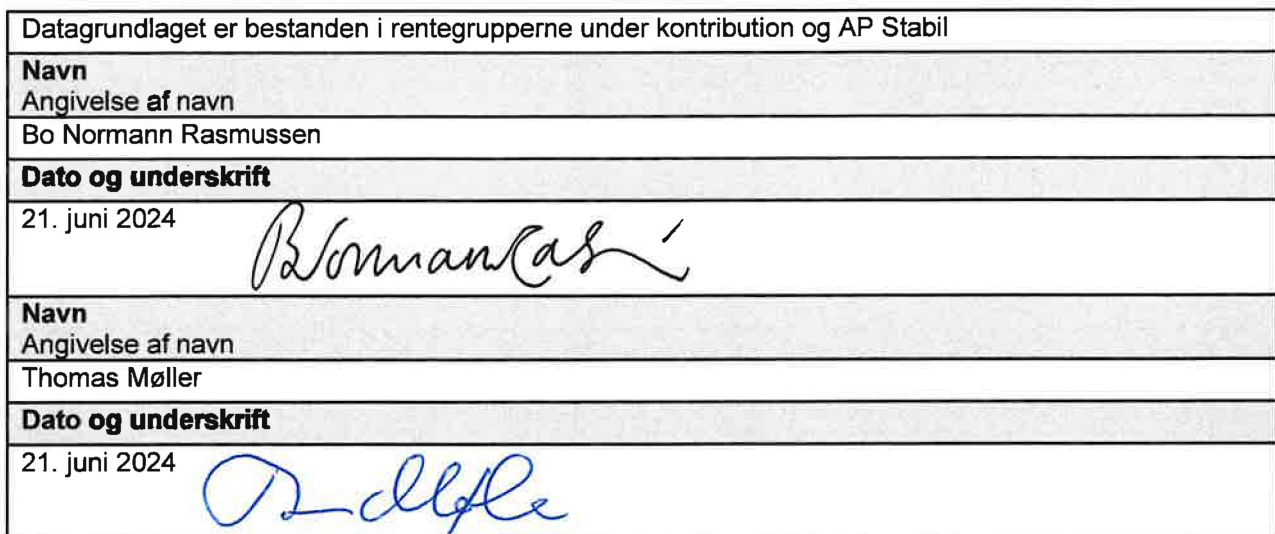 Datagrundlaget er bestanden i rentegrupperne under kontribution og AP Stabil
Navn
Angivelse af navn
Bo Normann Rasmussen
Dato og underskrift
21. juni 2024
Navn
Angivelse af navn
Thomas Møller
Dato og underskrift
21. juni 2024